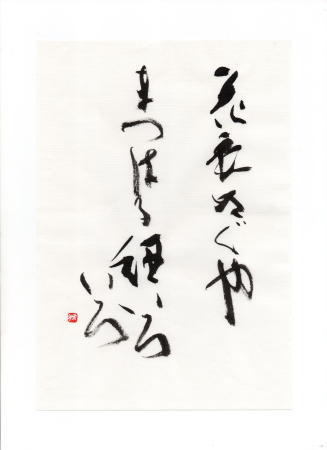 花衣ぬぐや
まつはる紐いろ
いろ